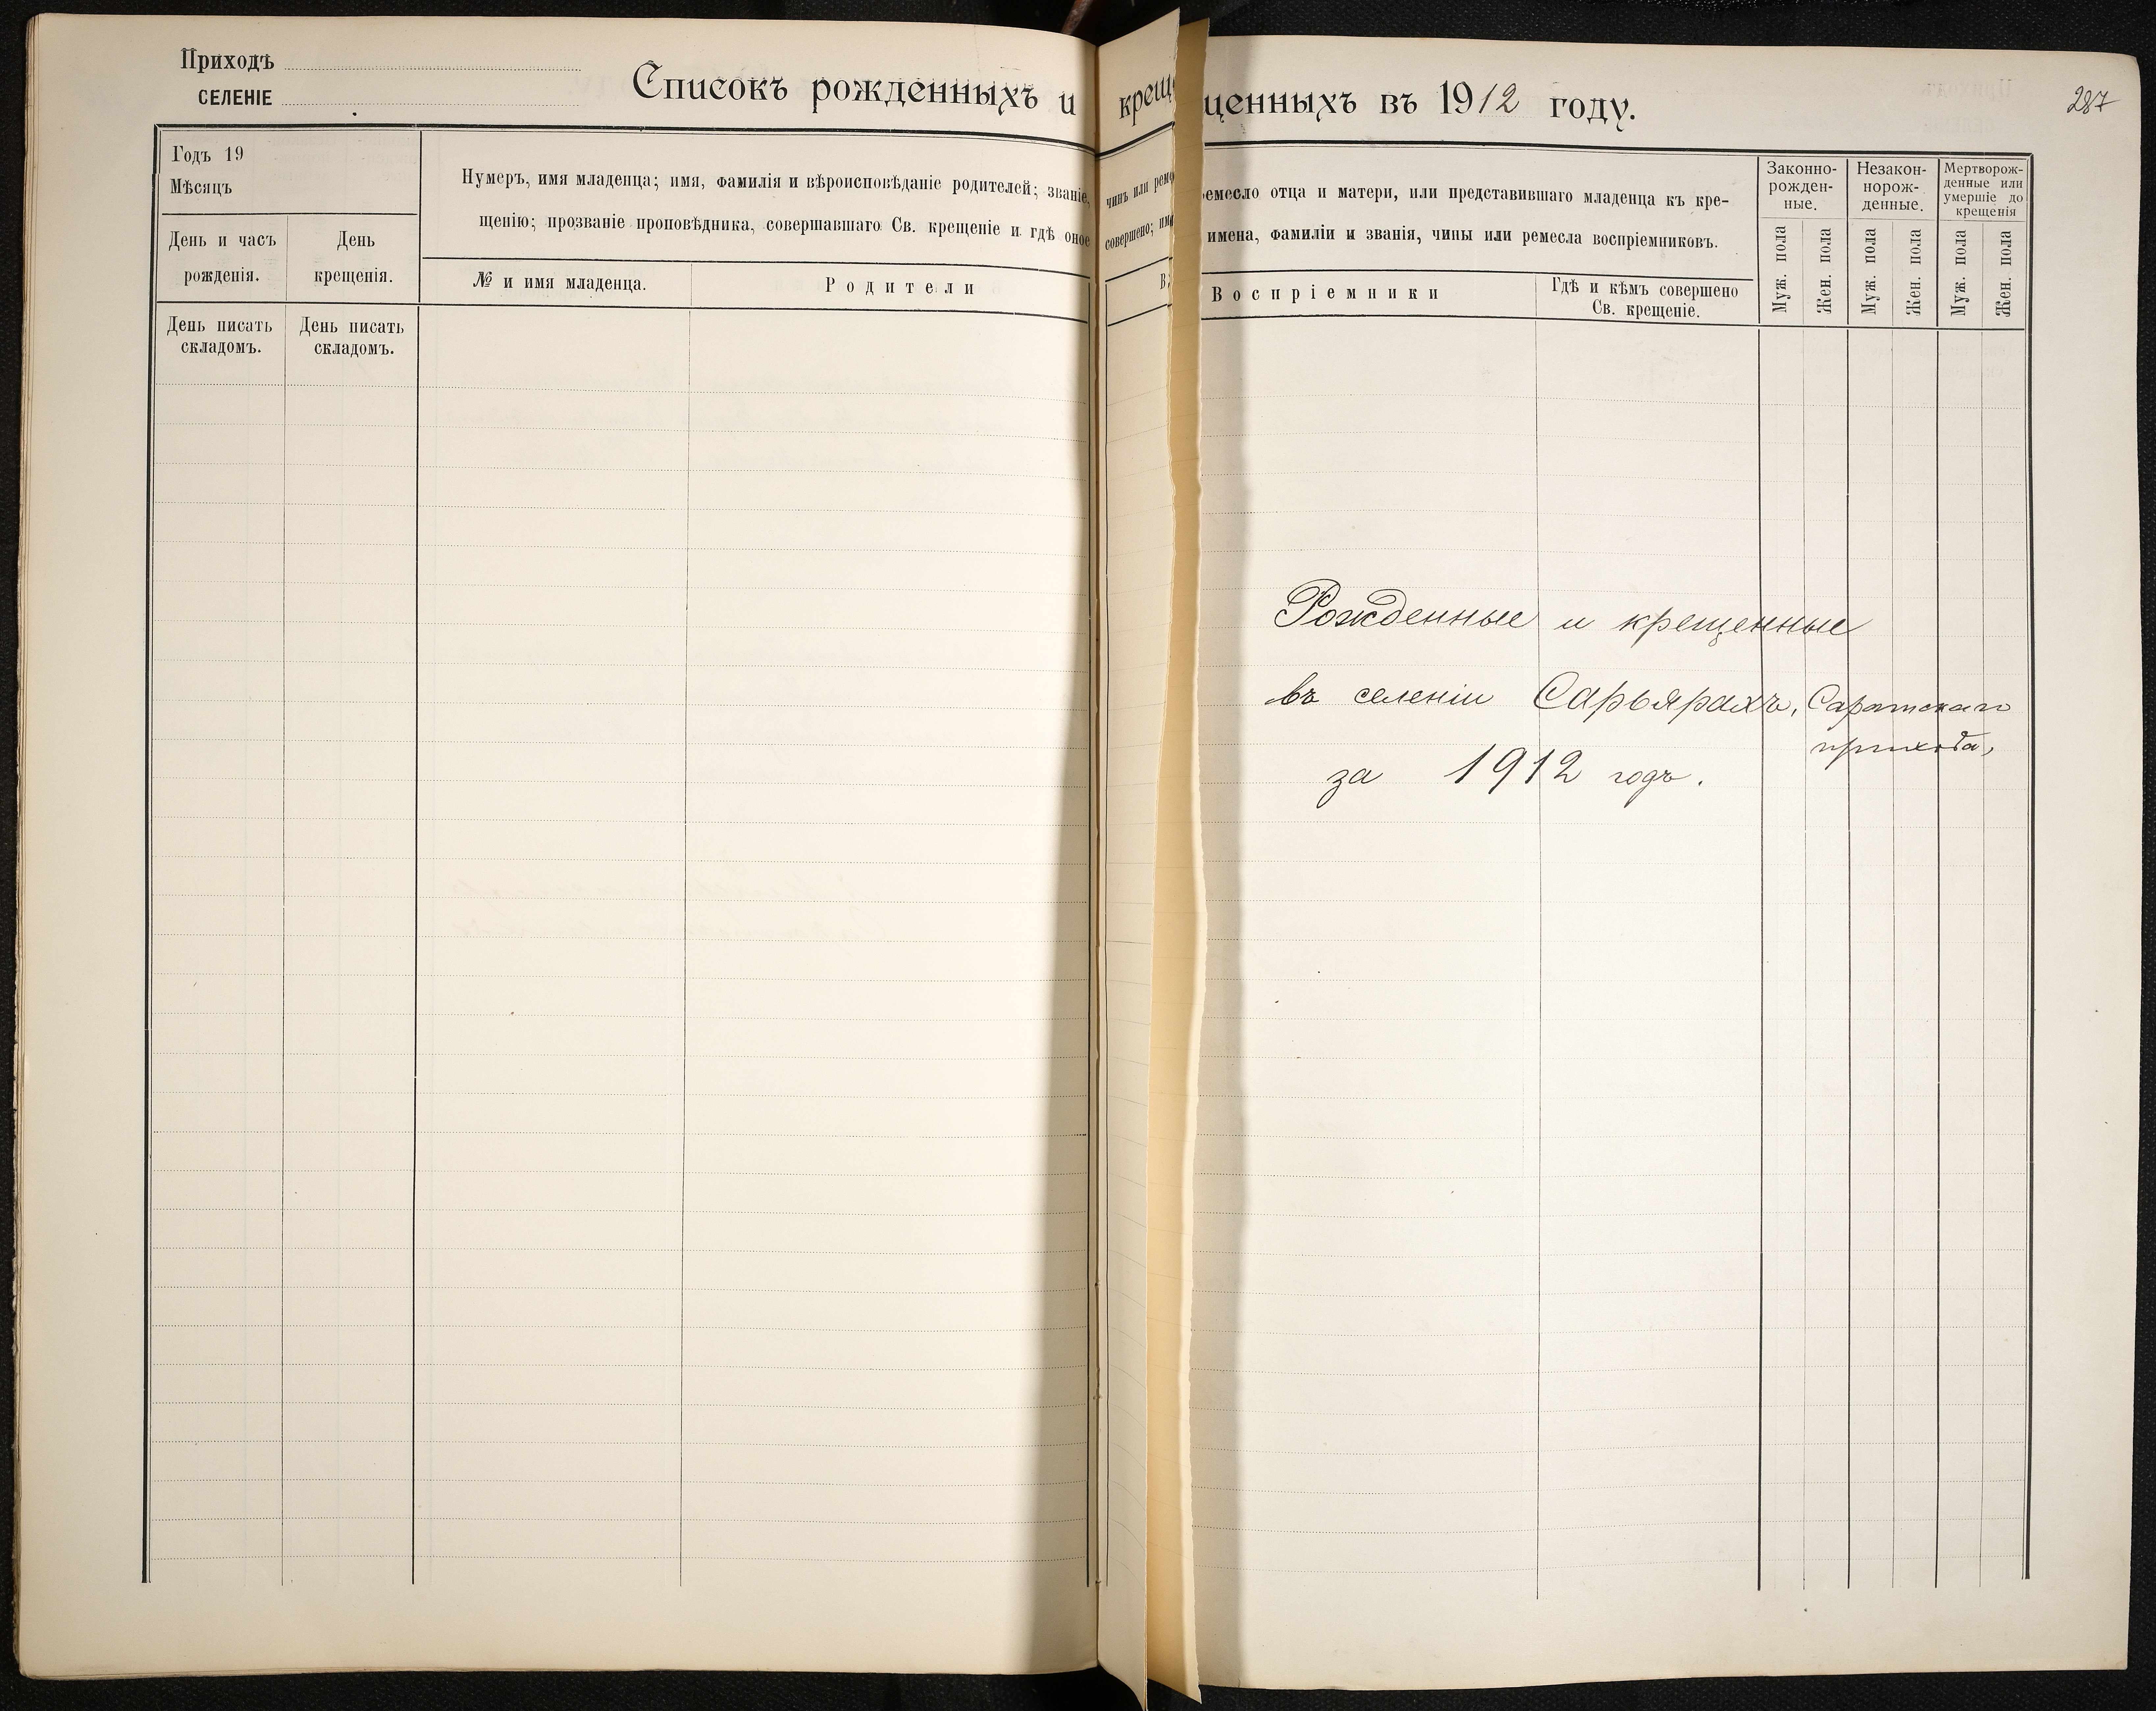 Приходъ
СЕЛЕНІЕ
Списокъ рожденныхъ и
Годъ 19
Мѣсяцъ
День и часъ
рожденія.
День
крещенія.
Нумеръ, имя младенца; имя, фамилія и вѣроисповѣданіе родителей; званіе,
щенію; прозваніе проповѣдника, совершавшаго Св. крещеніе и гдѣ оное
№ и имя младенца.
Родители
День писать
складомъ.
День писать
складомъ.
креще
чинъ или ремес
совершено; име
щенныхъ въ 1912 году.
287
ремесло отца и матери, или представившаго младенца къ кре-
имена, фамиліи и званія, чины или ремесла воспріемниковъ.
Воспріемники
Гдѣ и кѣмъ совершено
Св. крещеніе.
Законно-
рожден-
ные.
Незакон-
норож-
денные.
Мертворож-
денные или
умершіе до
крещенія
Муж. пола
Жен. пола
Муж. пола
Жен. пола
Муж. пола
Жен. пола
Рожденные и крещенные
въ селеніи Сарьярахъ, Саратскаго
прихода,
за 1912 годъ.